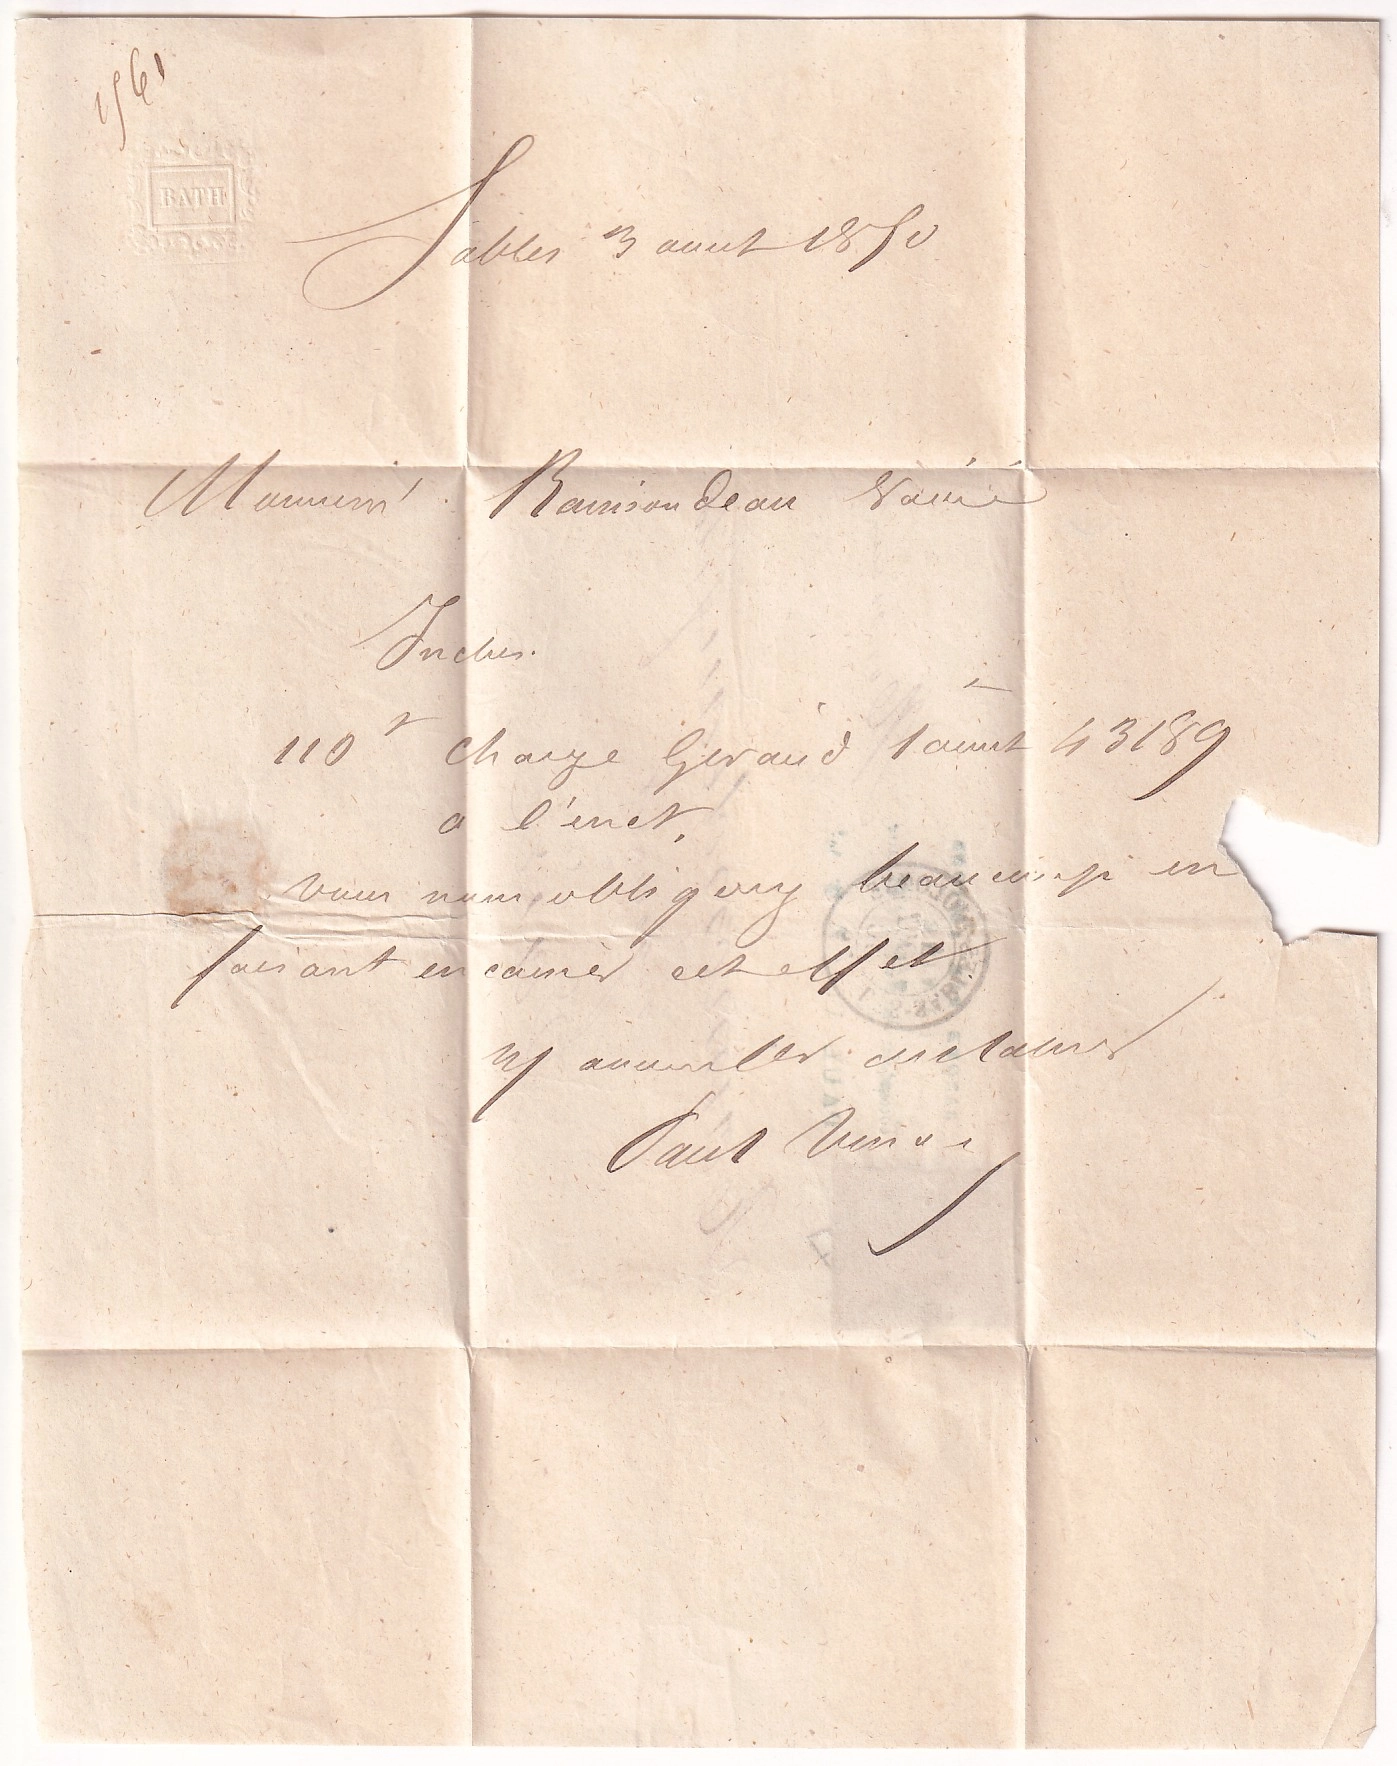 1561
BATH
Sables 3 aout 1850
Monsieur Ramsondeau
Inclus.
110 f charge Geraud 1 aout 43189
a l'enct.
vous nous obligerez beaucoup en
faisant encaisser cet effet.
salutations
Paul